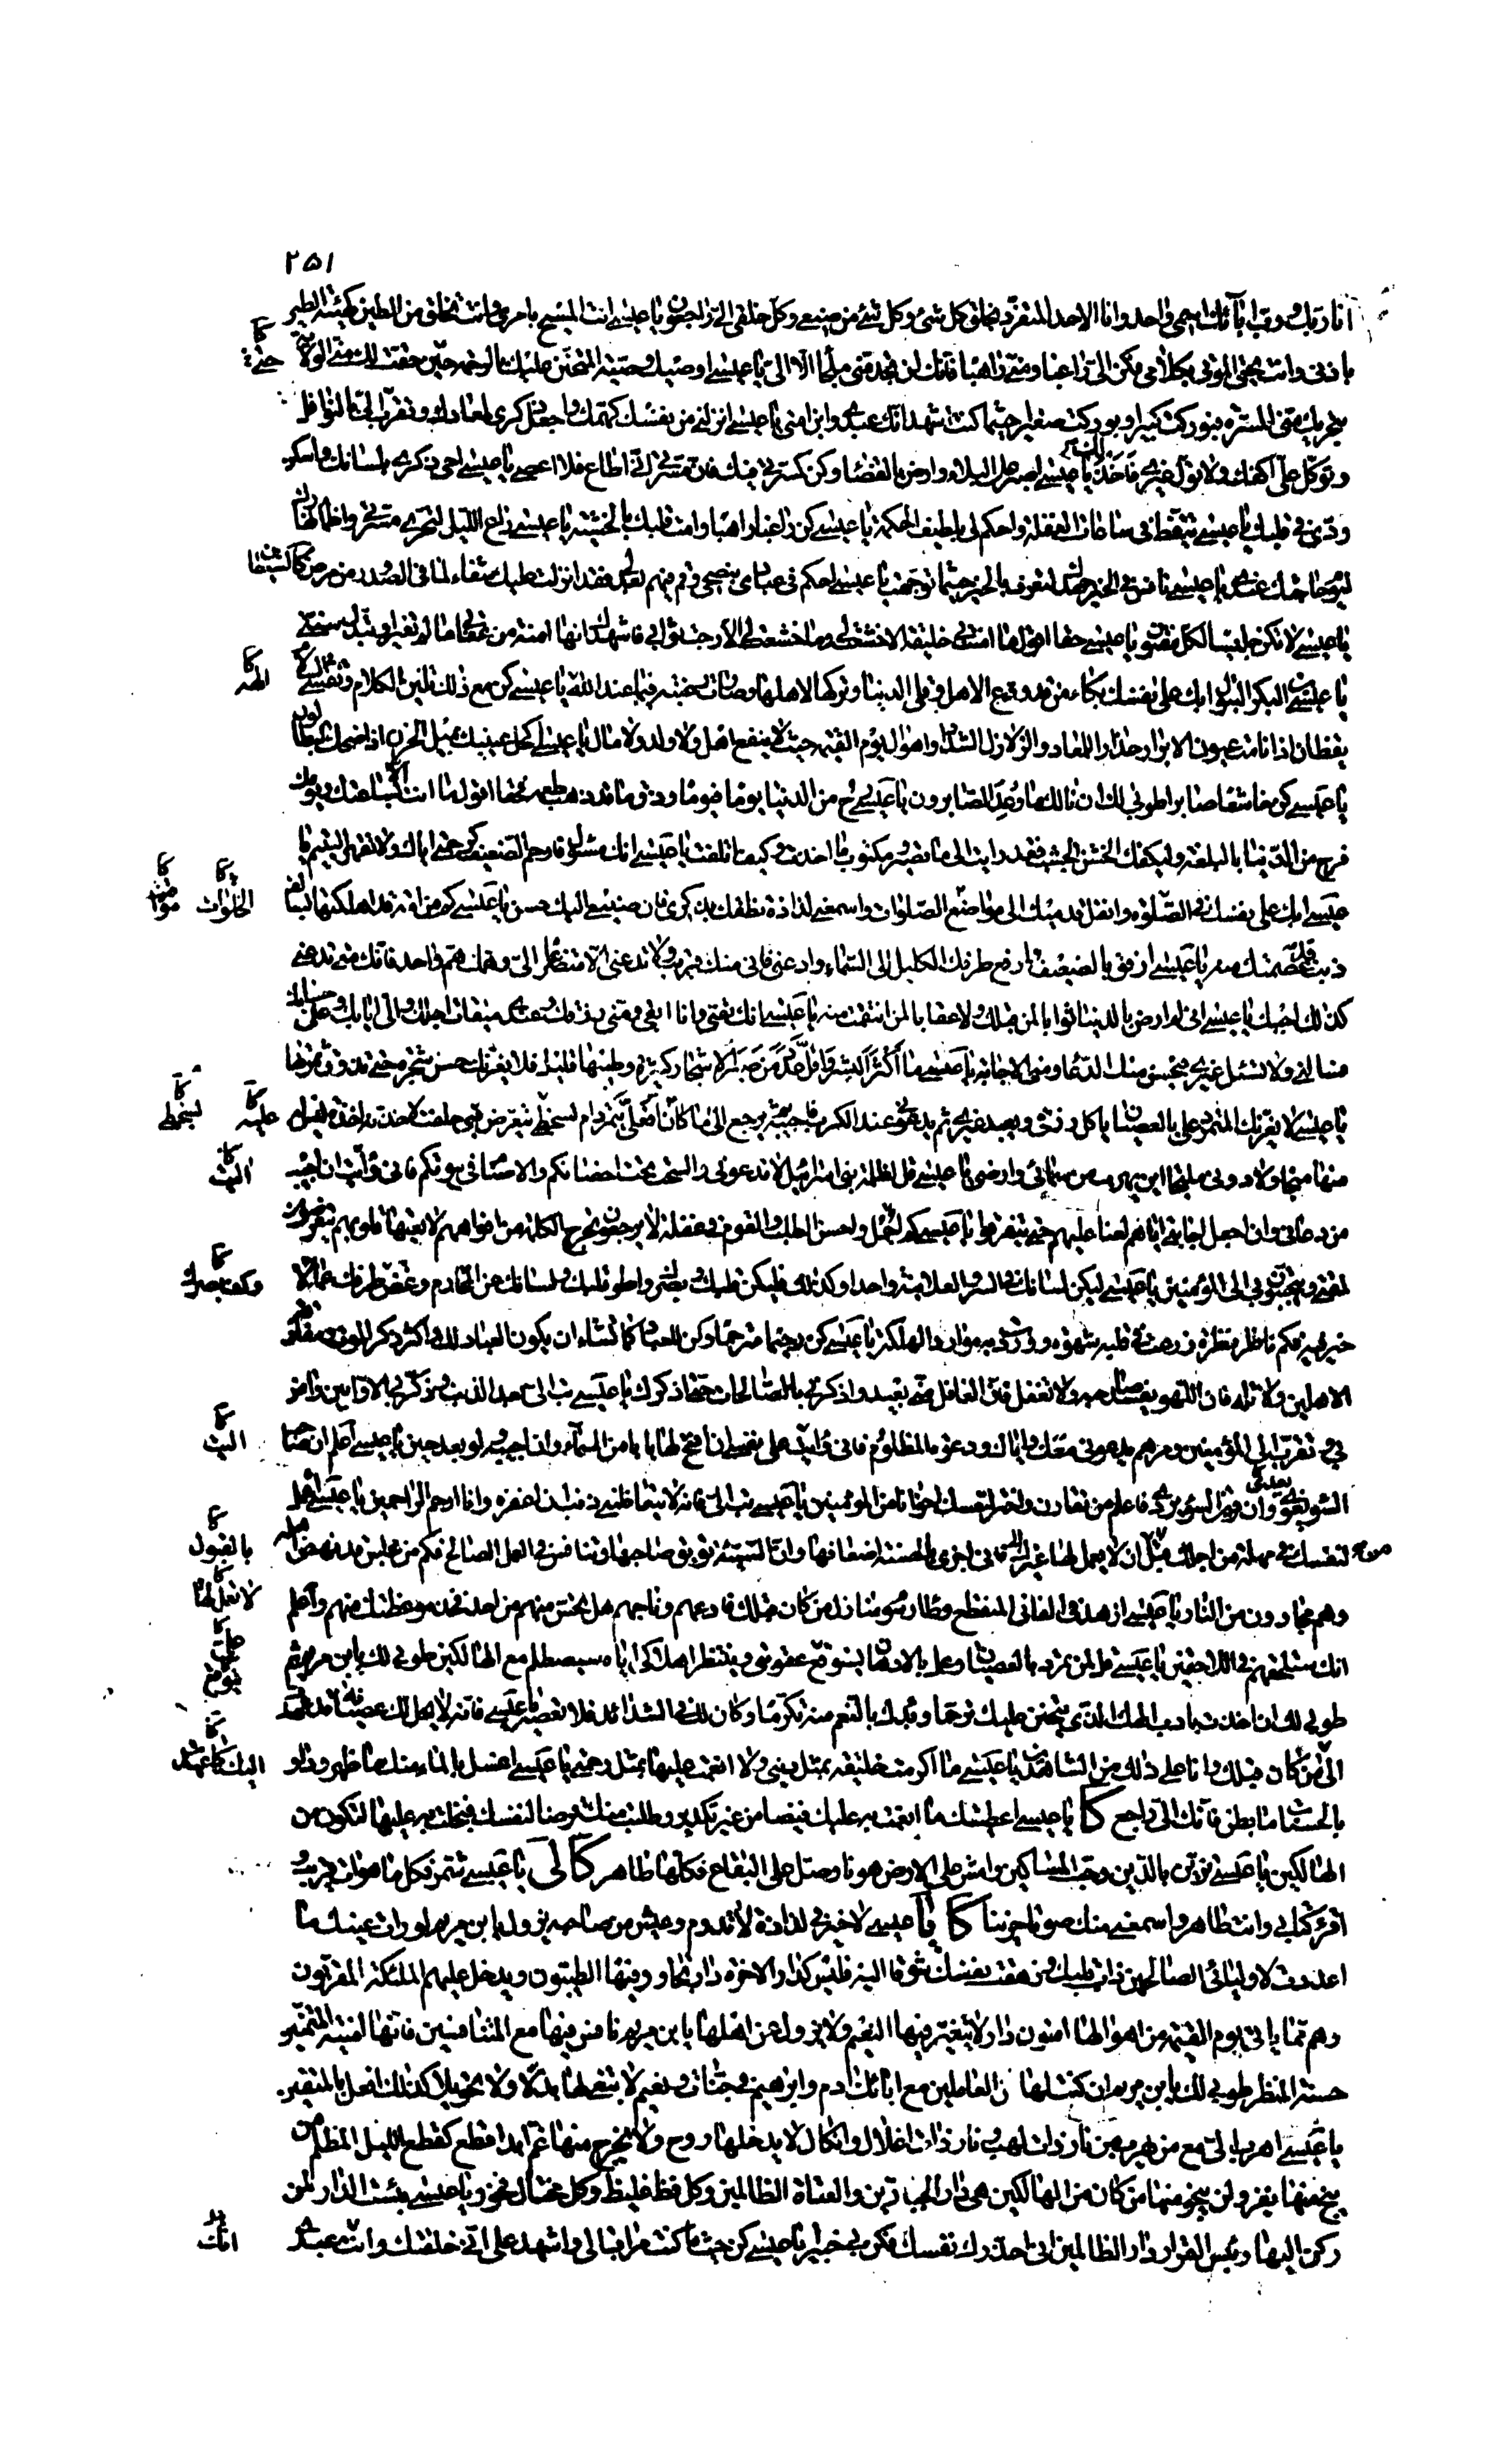 ٢۵١
انا ربك ورب ابائك اسمى واحد وانا الاحد المتفرد بخلق كل شئ وكل شئ من صنعى وكل خلقى الى راجعون يا عيسى انت المسيح بامرى وانت تخلق من الطين كهيئة الطير
باذنى وانت تحيى الموتى بكلامى فكن الى راغبا ومنى راهبا فانك لن تجد منى ملجأ الا الى يا عيسى اوصيك وصية المتحنن عليك بالرحمة حين حقت لك منى الولاية
بتحريك منى المسرة فبوركت كبيرا وبوركت صغيرا حيثما كنت اشهد انك عبدى وابن امتى يا عيسى انزلنى من نفسك كهمك واجعل ذكرى لمعادك وتقرب الى بالنوافل
وتوكل على اكفك ولا تول غيرى فاخذلك يا عيسى اصبر على البلاء وارض بالقضاء وكن كمسرتى فيك فان مسرتى ان اطاع فلا اعصى يا عيسى احى ذكرى بلسانك وليكن
ودى فى قلبك يا عيسى تيقظ فى ساعات الغفلة واحكم لى بلطيف الحكمة يا عيسى كن راغبا راهبا وامت قلبك بالخشية يا عيسى راع الليل لتحرى مسرتى واظمأ نهارك
ليوم حاجتك عندى يا عيسى نافس فى الخير جهدك لتعرف بالخير حيثما توجهت يا عيسى احكم فى عبادى بنصحى وقم فيهم بعدلى فقد انزلت عليك شفاء لما فى الصدور من مرض الشيطان
يا عيسى لا تكن جليسا لكل مفتون يا عيسى حقا اقول ما امنت بى خليقة الا خشعت لى وما خشعت لى الا رجت ثوابى فاشهدك انها امنة من عقابى ما لم تغير او تبدل سنتى
يا عيسى ابن البكر البتول ابك على نفسك بكاء من قد ودع الاهل وقلى الدنيا وتركها لاهلها وصارت رغبته فيما عند الله يا عيسى كن مع ذلك تلين الكلام وتفشى السلام
يقظان اذا نامت عيون الابرار حذارا للمعاد والزلازل الشداد واهوال يوم القيمة حيث لا ينفع اهل ولا ولد ولا مال يا عيسى اكحل عينيك بميل الحزن اذا ضحك البطالون
يا عيسى كن خاشعا صابرا طوبى لك ان نالك ما وعد الصابرون يا عيسى رح من الدنيا يوما فيوما وذق ما قد ذهب طعمه فحقا اقول ما انت الا بساعتك ويومك
فرح من الدنيا بالبلغة وليكفك الخشن الجشب فقد رايت الى ما تصير ومكتوب ما اخذت وكيف اتلفت يا عيسى انك مسئول فارحم الضعيف كرحمتى اياك ولا تقهر اليتيم يا
عيسى ابك على نفسك فى الصلوة وانقل قدميك الى مواضع الصلوات واسمعنى لذاذة نطقك بذكرى فان صنيعى اليك حسن يا عيسى كم من امة قد اهلكتها بسالف
ذنب قد عصمتك منه يا عيسى ارفق بالضعيف وارفع طرفك الكليل الى السماء وادعنى فانى منك قريب ولا تدعنى الا متضرعا الى وهمك هم واحد فانك متى تدعنى
كذلك اجبك يا عيسى انى لم ارض بالدنيا ثوابا لمن قبلك ولا عقابا لمن انتقمت منه يا عيسى انك تفنى وانا ابقى ومنى رزقك وعندى ميقات اجلك والى ايابك وعلى حسابك
فسلنى ولا تسئل غيرى فيحسن منك الدعاء ومنى الاجابة يا عيسى ما اكثر البشر واقل عدد من صبر الاشجار كثيرة وطيبها قليل فلا يغرنك حسن شجرة حتى تذوق ثمرتها
يا عيسى لا يغرنك المتمرد على بالعصيان ياكل رزقى ويعبد غيرى ثم يدعونى عند الكرب فاجيبه ثم يرجع الى ما كان فعلى يتمرد ام لسخطى يتعرض فبى حلفت لاخذنه اخذة ليس له
منها منجا ولا دونى ملجأ اين يهرب من سمائى وارضى يا عيسى قل لظلمة بنى اسرائيل لا تدعونى والسحت تحت احضانكم والاصنام فى بيوتكم فانى وايت ان اجيب
من دعانى وان اجعل اجابتى اياهم لعنا عليهم حتى يتفرقوا يا عيسى كم اجمل ولحسن الطلب والقوم فى غفلة لا يرجعون تخرج الكلمة من افواههم لا تعيها قلوبهم يتعرضون
لمقتى ويتحببون بى الى المؤمنين يا عيسى ليكن لسانك فى السر والعلانية واحدا وكذلك فليكن قلبك وبصرك واطو قلبك ولسانك عن المحارم وغض طرفك عما لا
خير فيه فكم ناظر نظرة زرعت فى قلبه شهوة ووردت به موارد الهلكة يا عيسى كن رحيما مترحما وكن للعباد كما تشاء ان يكون العباد لك واكثر ذكر الموت ومفارقة
الاهلين ولا تله فان اللهو يفسد صاحبه ولا تغفل فان الغافل منى بعيد واذكرنى بالصالحات حتى اذكرك يا عيسى تب الى بعد الذنب وذكر بى الاوابين وامن
بى وتقرب الى المؤمنين ومرهم يدعونى معك واياك ودعوة المظلوم فانى وايت على نفسى ان افتح لها بابا من السماء وان اجيبه ولو بعد حين يا عيسى اعلم ان صاحب
السوء يغوى وان قرين السوء يردى فاعلم من تقارن واختر لنفسك اخوانا من المؤمنين يا عيسى تب الى فانه لا يتعاظمنى ذنب ان اغفره وانا ارحم الراحمين يا عيسى اعمل
لنفسك فى مهلة من اجلك قبل ان لا يعمل لها غيرك فانى اجزى بالحسنة اضعافها وان السيئة توبق صاحبها وتنافس فى العمل الصالح فكم من مجلس قد نهض اهله
وهم مجارون من النار يا عيسى ازهد فى الفانى المنقطع وطأ رسوم منازل من كان قبلك فادعهم وناجهم هل تحس منهم من احد فخذ موعظتك منهم واعلم
انك ستلحقهم فى اللاحقين يا عيسى قل لمن تمرد بالعصيان وعمل بالادهان يتوقع عقوبتى وينتظر اهلاكى اياه سيصطلم مع الهالكين طوبى لك يا ابن مريم ثم
طوبى لك ان اخذت بادب الهك الذى يتحنن عليك ترحما وبدأك بالنعم منه تكرما وكان لك فى الشدائد فلا تعصه يا عيسى فانه لا يحل لك عصيانه قد عهدت
الى من كان قبلك وانا على ذلك من الشاهدين يا عيسى ما اكرمت خليقة بمثل دينى ولا انعمت عليها بمثل رحمتى يا عيسى اغسل بالماء منك ما ظهر وداو
بالحسنات ما بطن فانك الى راجع كا يا عيسى اعطيتك ما انعمت به عليك فيضا من غير تكدير وطلبت منك قرضا لنفسك فبخلت به عليها لتكون من
الهالكين يا عيسى تزين بالدين وحب المساكين وامش على الارض هونا وصل على البقاع فكلها طاهر كا لى يا عيسى شمر فكل ما هو ات قريب و
اقرء كتابى وانت طاهر واسمعنى منك صوتا حزينا كا يا عيسى لا خير فى لذاذة لا تدوم وعيش من صاحبه يزول يا ابن مريم لو رات عينك ما
اعددت لاوليائى الصالحين ذاب قلبك وزهقت نفسك شوقا اليه فليس كدار الاخرة دار تجاور فيها الطيبون ويدخل عليهم الملئكة المقربون
وهم مما ياتى يوم القيمة من اهوالها امنون دار لا يتغير فيها النعيم ولا يزول عن اهلها يا بن مريم نافس فيها مع المتنافسين فانها امنية المتمنين
حسنة المنظر طوبى لك يا بن مريم ان كنت لها من العاملين مع ابائك ادم وابراهيم فى جنات ونعيم لا تبغى لها بدلا ولا تحويلا كذلك افعل بالمتقين
يا عيسى اهرب الى مع من يهرب من نار ذات لهب ونار ذات اغلال وانكال لا يدخلها روح ولا يخرج منها غم ابدا قطع كقطع الليل المظلم من
ينج منها يفز ولن ينجو منها من كان من الهالكين هى دار الجبارين والعتاة الظالمين وكل فظ غليظ وكل مختال فخور يا عيسى بئست الدار لمن
ركن اليها وبئس القرار دار الظالمين انى احذرك نفسك فكن بى خبيرا يا عيسى كن حيث ما كنت مراقبا لى واشهد على انى خلقتك وانت عبدى